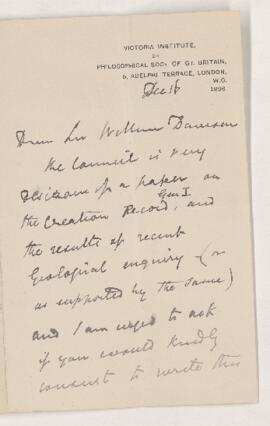 VICTORIA INSTITUTE,
OR
PHILOSOPHICAL SOCY. OF GT. BRITAIN,
8, ADELPHI TERRACE, LONDON,
W.C.
Dec 16 1896
Dear Sir William Dawson
the Council is very
desirous of a paper on
the Creation Record, Gen I. and
the results of recent
Geological enquiry (or
as supported by the same)
and I am urged to ask
if you would kindly
consent to write this